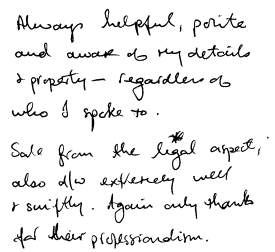 Always helpful, polite
and aware of my details
& property — regardless of
who I spoke to.
Sale from the legal aspect,
also d/w extremely well
& swiftly. Again only thanks
for their professionalism.